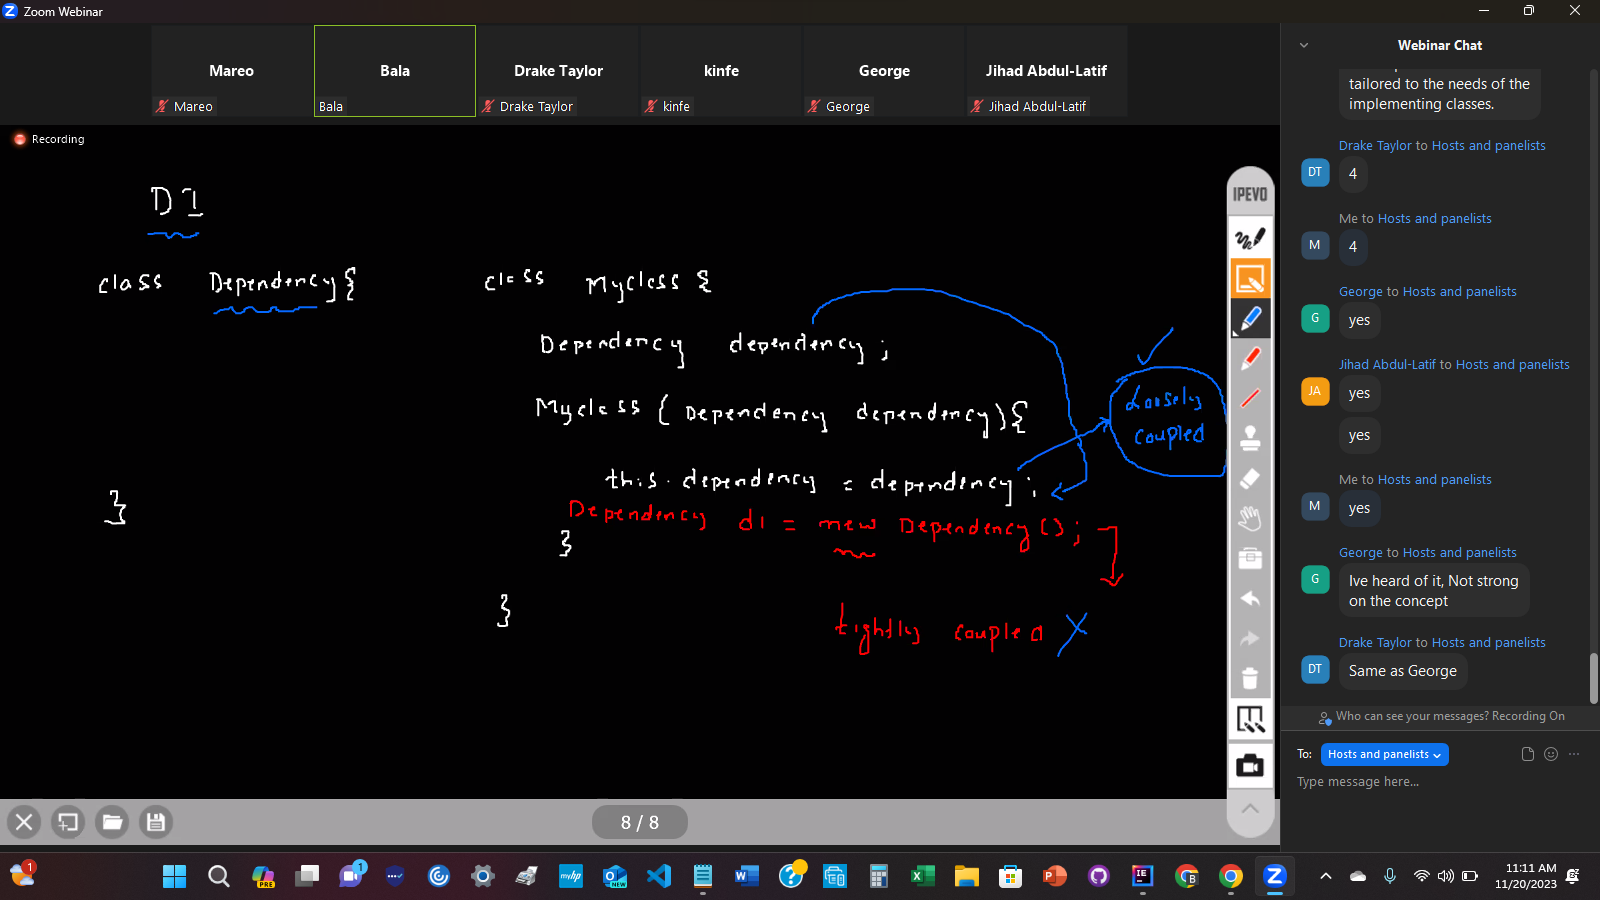 Zoom Webinar
Mareo
Bala
Drake Taylor
kinfe
George
Jihad Abdul-Latif
Mareo
Bala
Drake Taylor
kinfe
George
Jihad Abdul-Latif
Recording
DI
class Dependency{
}
class Myclass {
Dependency dependency ;
Myclass ( Dependency dependency){
this.dependency = dependency ;
Dependency d1 = new Dependency();
}
}
tightly coupled X
Loosely
coupled
IPEVO
8 / 8
Webinar Chat
tailored to the needs of the
implementing classes.
Drake Taylor to Hosts and panelists
DT
4
Me to Hosts and panelists
M
4
George to Hosts and panelists
G
yes
Jihad Abdul-Latif to Hosts and panelists
JA
yes
yes
Me to Hosts and panelists
M
yes
George to Hosts and panelists
G
Ive heard of it, Not strong
on the concept
Drake Taylor to Hosts and panelists
DT
Same as George
Who can see your messages? Recording On
To: Hosts and panelists
Type message here...
1
PRE
1
myhp
NEW
11:11 AM
11/20/2023